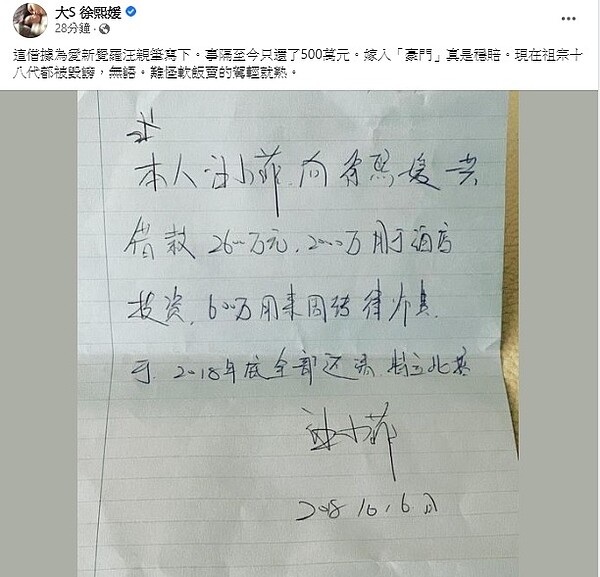 大S 徐熙媛
28分鐘
這借據為愛新覺羅汪親筆寫下。事隔至今只還了500萬元。嫁入「豪門」真是穩賠。現在祖宗十
八代都被毀謗，無語。難怪軟飯賣的駕輕就熟。
本人汪小菲向徐熙媛共
借款2600万元，2000万用于酒店
投资，600万用来周转
于2018年底全部还清，特立此
汪小菲
2018.10.6日